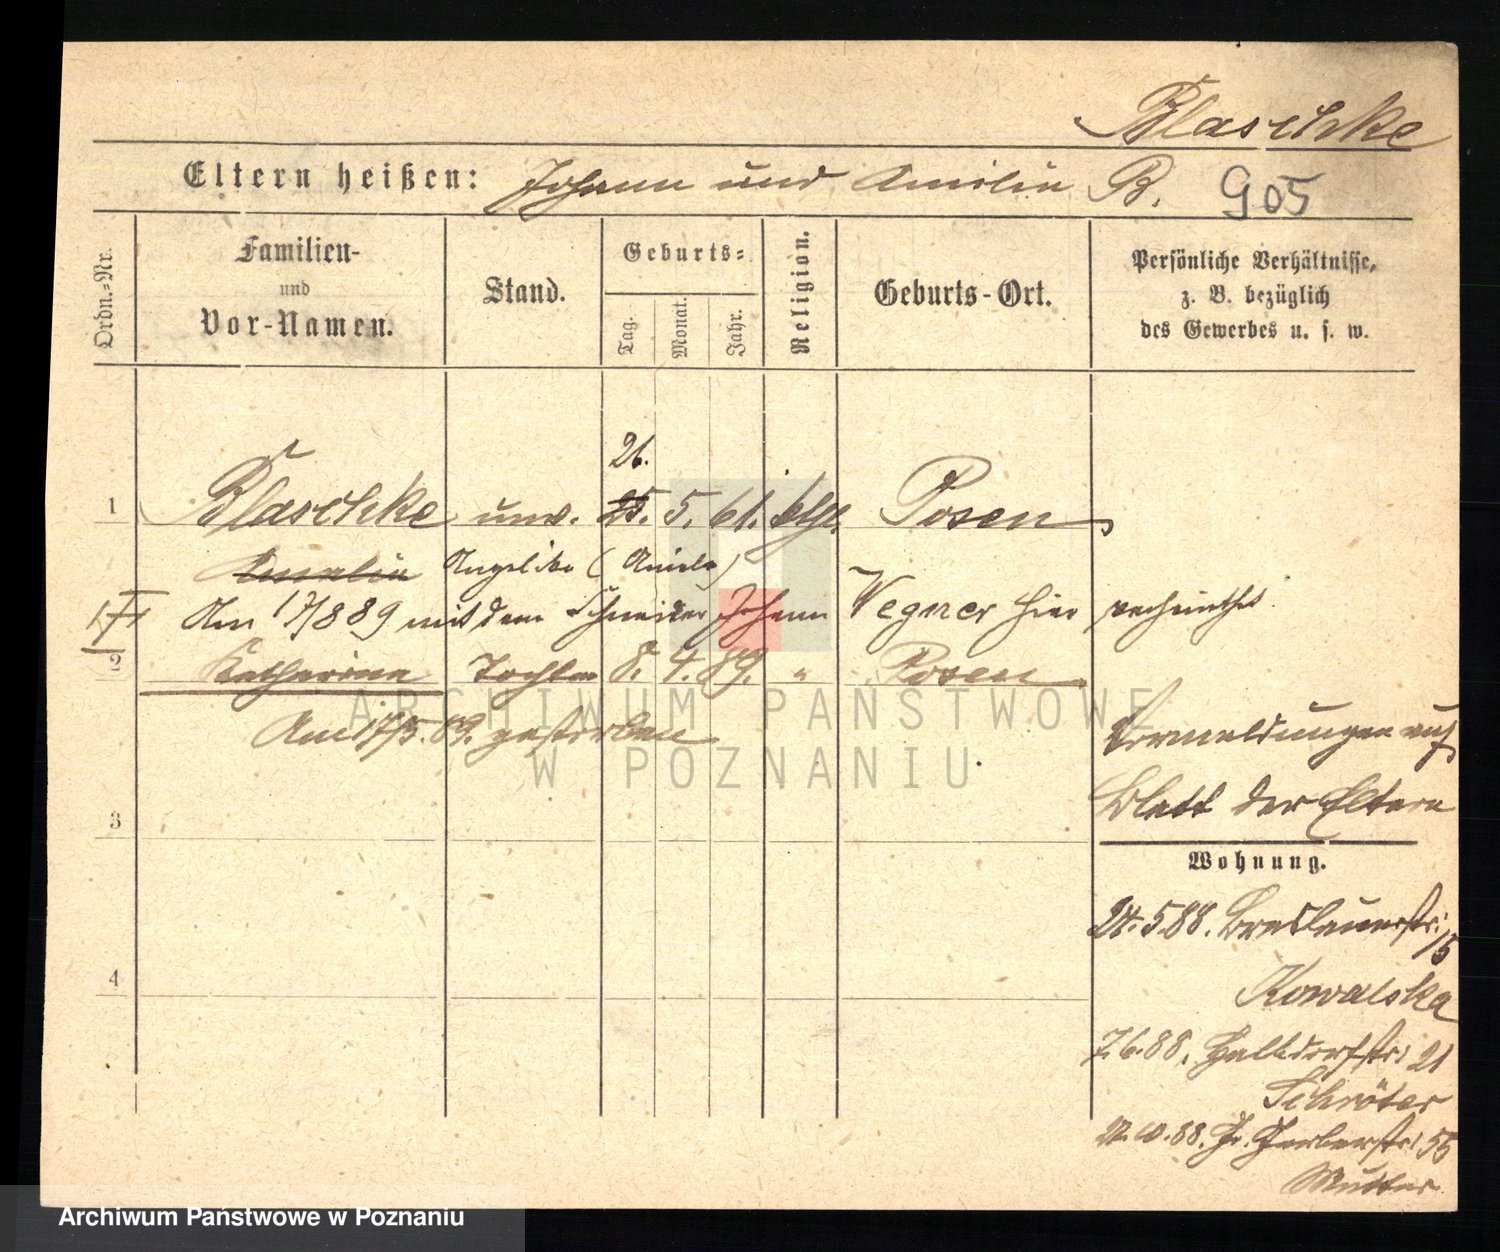 Blaschke
Eltern heißen: Johann und Amilia B. 905
Ordn.-Nr.
Familien-
und
Vor-Namen.
Stand.
Geburts-
Tag.
Monat.
Jahr.
Religion.
Geburts-Ort.
Persönliche Verhältnisse,
z. B. bezüglich
des Gewerbes u. s. w.
26.
1 Blaschke unv. 25. 5. 61. kthl. Posen
Amalia Angelika (Aniela)
Am 17/8 89 mit dem Schneider Johann Wegner hier verheirathet.
2 Katharina Tochter 8. 4. 89. " Posen
Am 17/5. 89. gestorben
Vormeldungen auf
Blatt der Eltern
3
Wohnung.
24.5.88. Breslauerstr. 15
Kowalska
4
7.6.88. Halbdorfstr. 21
Schröter
88. Gr. Gerberstr. 55
Mutter
ARCHIWUM PAŃSTWOWE
W POZNANIU
Archiwum Państwowe w Poznaniu